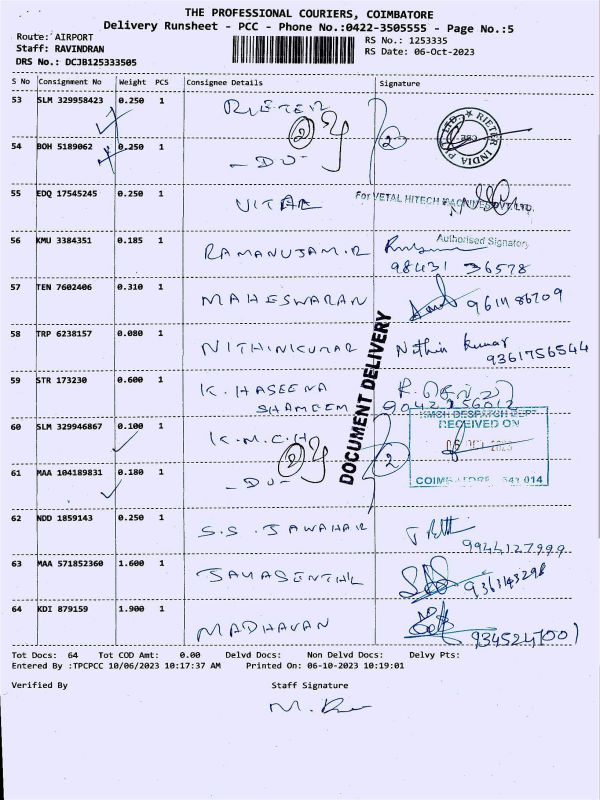 THE PROFESSIONAL COURIERS, COIMBATORE
Delivery Runsheet - PCC - Phone No.:0422-3505555 - Page No.:5
Route: AIRPORT
RS No.: 1253335
Staff: RAVINDRAN
RS Date: 06-Oct-2023
DRS No.: DCJB125333505
S No Consignment No Weight PCS Consignee Details Signature
53 SLM 329958423 0.250 1 RIETER
RIETER INDIA PVT. LTD.
54 BOH 5189062 0.250 1 - DO -
2 2
55 EDQ 17545245 0.250 1 VITAL
For VETAL HITECH MACHINES PVT. LTD.
Authorised Signatory
56 KMU 3384351 0.185 1 RAMANUJAM.R
98431 36578
57 TEN 7602406 0.310 1 MAHESWARAN
9611486209
58 TRP 6238157 0.080 1 NITHINKUMAR Nithin kumar
9361756544
DOCUMENT DELIVERY
59 STR 173230 0.600 1 K. HASEENA
SHAMEEM 9042256012
60 SLM 329946867 0.100 1 K.M.C.H
KMCH DESPATCH DEPT.
RECEIVED ON
06 OCT 2023
COIMBATORE - 641 014
2 2
61 MAA 104189831 0.180 1 - DO -
62 NDD 1859143 0.250 1 S.S. JAWAHAR
9944127999
63 MAA 571852360 1.600 1 JAYASENTHIL
9361143298
64 KDI 879159 1.900 1 MADHAVAN
Tot Docs: 64 Tot COD Amt: 0.00 Delvd Docs: Non Delvd Docs: Delvy Pts:
Entered By :TPCPCC 10/06/2023 10:17:37 AM Printed On: 06-10-2023 10:19:01
Verified By Staff Signature